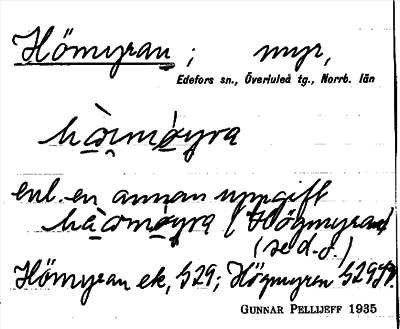 Hömyran ; myr,
Edefors sn., Överluleå tg., Norrb. län
enl. en annan uppgift
(Högmyran)
(se d.o.)
Hömyran ek, S29; Högmyren S29
GUNNAR PELLIJEFF 1935